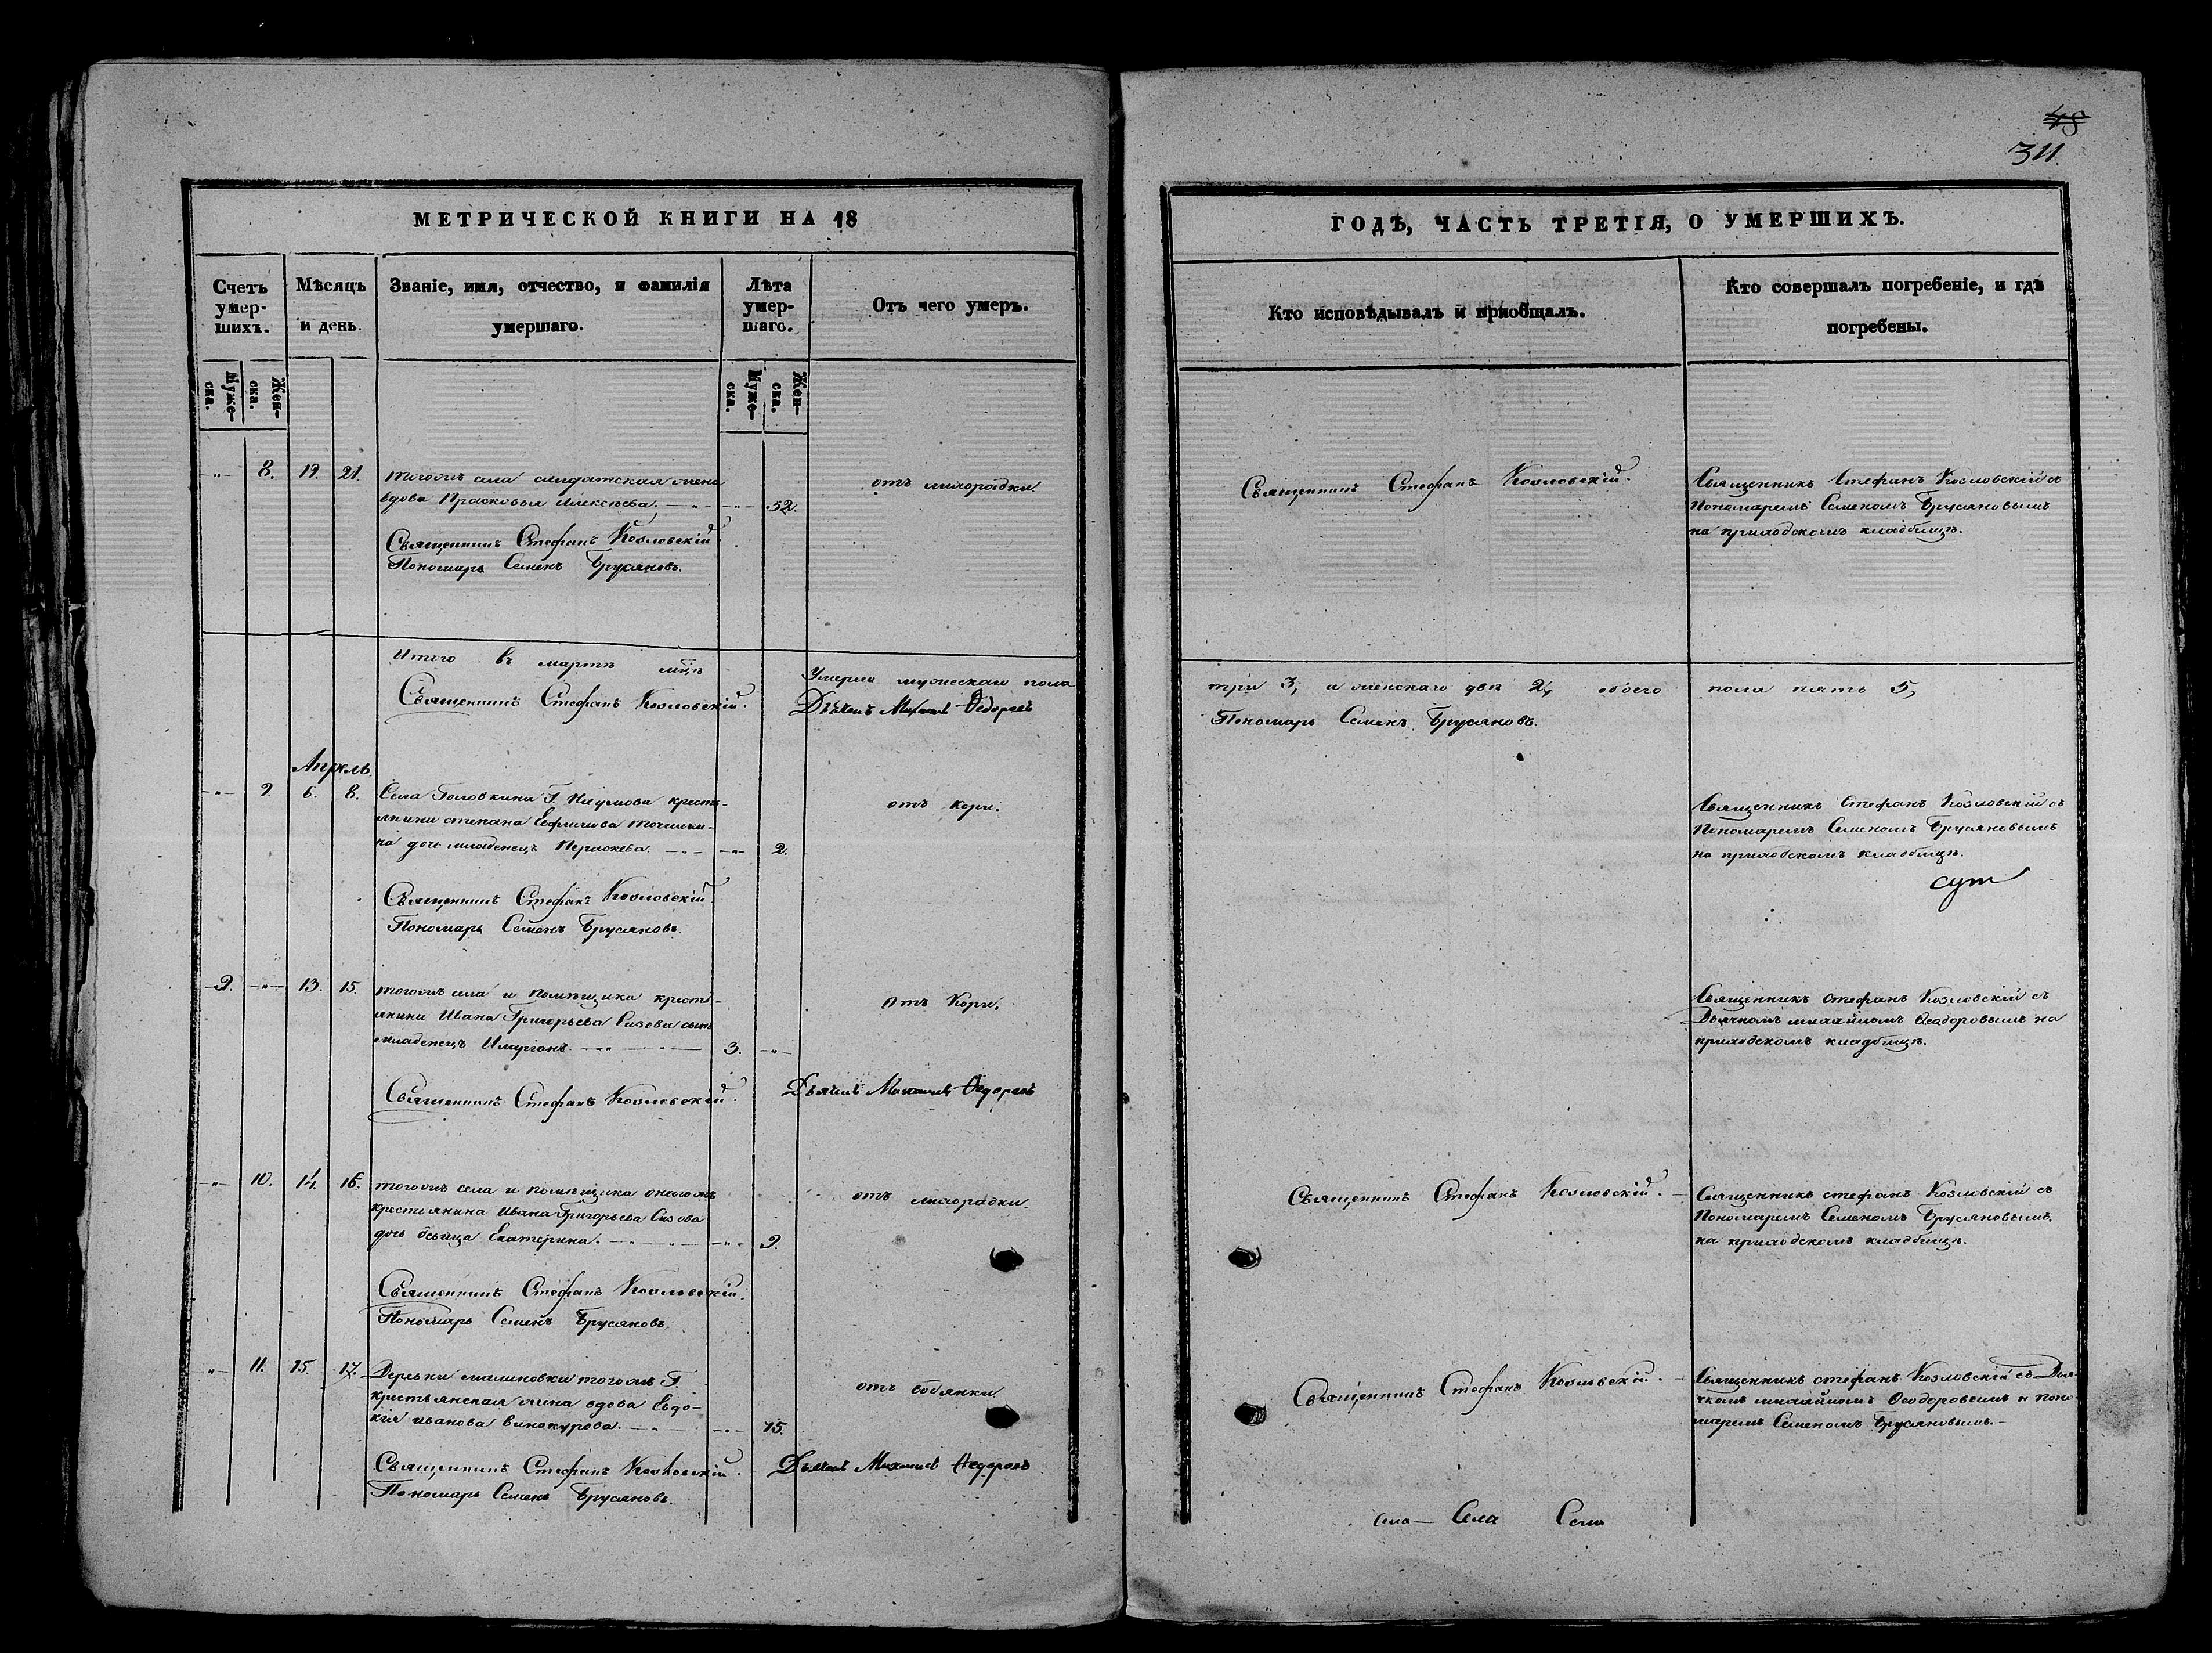 48
311
МЕТРИЧЕСКОЙ КНИГИ НА 18
ГОДЪ, ЧАСТЬ ТРЕТІЯ, О УМЕРШИХЪ.
Счетъ умер-шихъ.
Мѣсяцъ и день.
Званіе, имя, отчество, и фамилія умершаго.
Лѣта умер-шаго.
Отъ чего умеръ.
Кто исповѣдывалъ и пріобщалъ.
Кто совершалъ погребеніе, и гдѣ погребены.
Муже-ска.
Жен-ска.
Муже-ска.
Жен-ска.
8. 19. 21. тогожъ села солдатская жена
вдова Прасковья Алексѣева. 52.
отъ лихорадки.
Священникъ Стефанъ Козловскій.
Священникъ Стефанъ Козловскій съ
Пономаремъ Семеномъ Брусяновымъ
на приходскомъ кладбищѣ.
Священникъ Стефанъ Козловскій.
Пономарь Семенъ Брусяновъ.
Итого въ мартѣ мцѣ Умерли мужеска пола три 3, а женскаго двѣ 2, обоего пола пять 5,
Священникъ Стефанъ Козловскій. Дьячекъ Михаилъ Федоровъ Пономарь Семенъ Брусяновъ.
Апрель.
9. 6. 8. Села Головкина Г. Наумова кресть-
янина степана Ефимова
на дочь младенецъ Параскева. 2.
отъ кори.
Священникъ Стефанъ Козловскій съ
Пономаремъ Семеномъ Брусяновымъ
на приходскомъ кладбищѣ.
Священникъ Стефанъ Козловскій
Пономарь Семенъ Брусяновъ.
9. 13. 15. тогожъ села и помѣщика кресть-
янина Ивана Григорьева Сизова сынъ
младенецъ Иларіонъ. 3.
Отъ Кори.
Священникъ стефанъ Козловскій съ
Дьячкомъ михайломъ Феодоровымъ на
приходскомъ кладбищѣ.
Священникъ Стефанъ Козловскій. Дьячекъ Михаилъ Федоровъ
10. 14. 16. тогожъ села и помѣщика онагожъ
крестьянина Ивана Григорьева Сизова
дочь дѣвица Екатерина. 9.
отъ лихорадки.
Священникъ Стефанъ Козловскій.
Священникъ стефанъ Козловскій съ
Пономаремъ Семеномъ Брусяновымъ.
на приходскомъ кладбищѣ.
Священникъ Стефанъ Козловскій.
Пономарь Семенъ Брусяновъ.
11. 15. 17. Деревни малиновки тогожъ Г.
крестьянская жена вдова Евдо-
кія иванова винокурова. 75.
отъ водянки
Священникъ Стефанъ Козловскій.
Священникъ стефанъ Козловскій съ Дья-
чкомъ михайломъ Феодоровымъ и поно-
маремъ Семеномъ Брусяновымъ.
Священникъ Стефанъ Козловскій. Дьячекъ Михаилъ Федоровъ
Пономарь Семенъ Брусяновъ.
Села Села